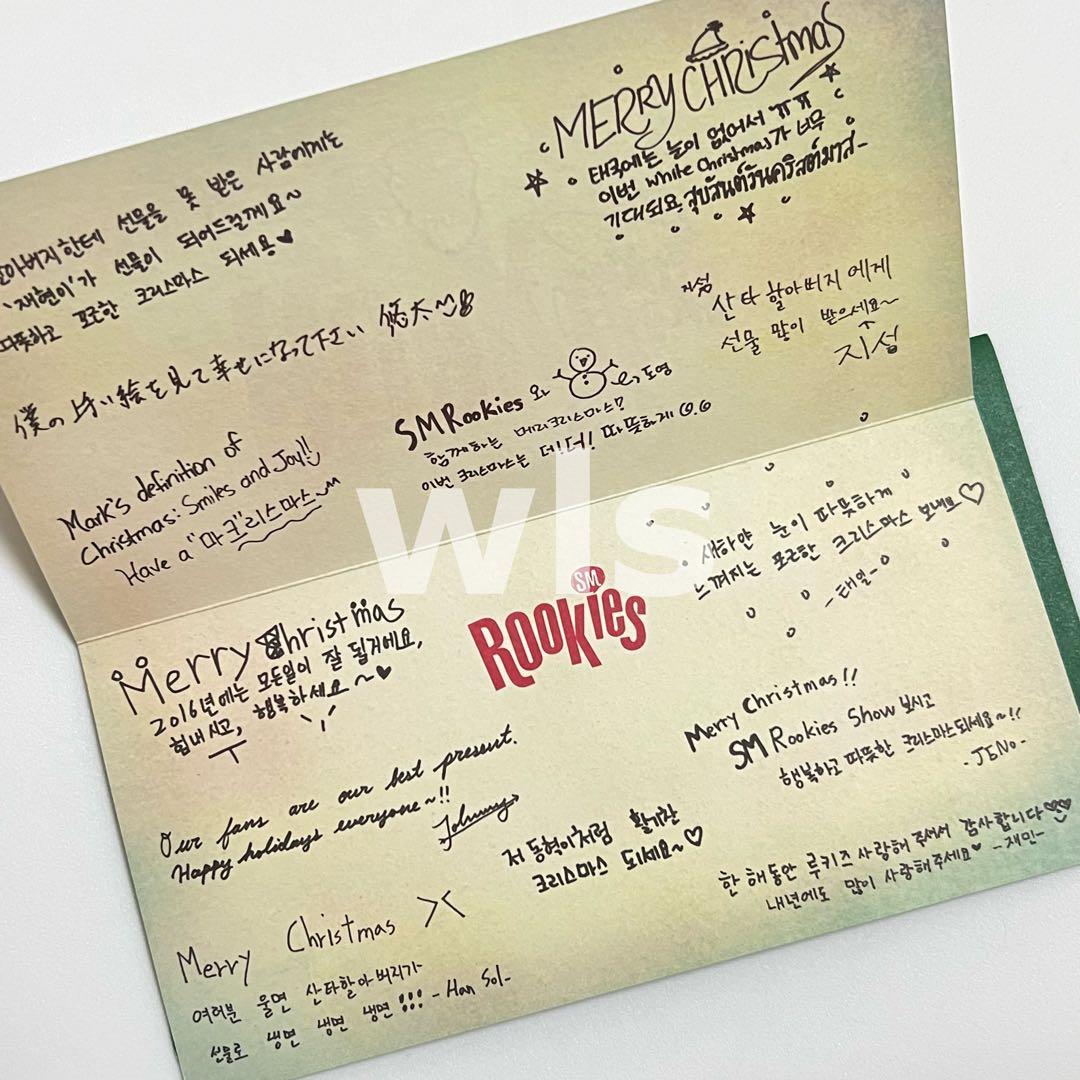 할아버지한테 선물을 못 받은 사람에게는
'재현이'가 선물이 되어드릴게요~
따뜻하고 포근한 크리스마스 되세용♥
MERRY CHRISTMAS
태국에는 눈이 없어서 ㅠㅠ
이번 White Christmas가 너무
기대되요. สุขสันต์วันคริสต์มาส-
僕の 絵を見て幸せになって下さい 悠太
지성
산타 할아버지에게
선물 많이 받으세요~
지성
SMRookies 와 도영
함께하는 메리크리스마스?
이번 크리스마스는 더! 더! 따뜻하게 ⊙.⊙
Mark's definition of
Christmas: Smiles and Joy!!
Have a "마크"리스마스~
wls
새하얀 눈이 따뜻하게
느껴지는 포근한 크리스마스 보내요♡
-태일-
SM
ROOKIES
Merry Christmas
2016년에는 모든일이 잘 될거에요,
힘내시고, 행복하세요~♥
Merry Christmas!!
SM Rookies Show 보시고
행복하고 따뜻한 크리스마스되세요~!!
-JENo-
Our fans are our best present.
Happy holidays everyone~!!
Johnny
저 동혁이처럼 활기찬
크리스마스 되세요~♡
한 해동안 루키즈 사랑해 주셔서 감사합니다♥♡
내년에도 많이 사랑해주세요♥ -재민-
Merry Christmas ><
여러분 울면 산타할아버지가
선물로 냉면 냉면 냉면!!! -Han Sol-